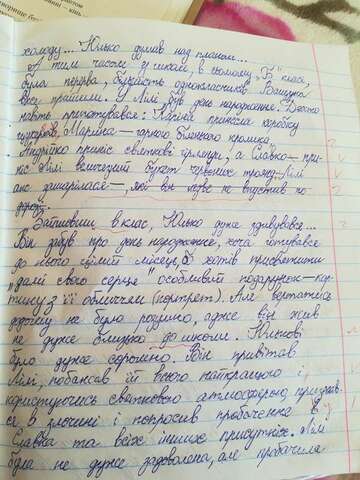 холоду... Юлько думав над планом...
А тим часом у школі, в сьомому Б класі,
була перерва, більшість однокласників
всі прийшли. У Лілі був день народження. Багато
навіть приготувався: Каріна принесла коробку
цукерок, Марійка — гарного біленького кролика,
Андрійко приніс святкові гірлянди, а Славко — при-
ніс Лілі величезний букет червоних троянд
які він ледве не впустив по
дорозі.
Зайшовши в клас, Юлько дуже здивувався...
Він забув про день народження, хоча готувався
до нього цілий місяць, хотів присвятити
„дамі свого серця" особливий подарунок — кар-
тину з її обличчям (портрет). Але вертатися
додому не було розумно, адже він жив
не дуже близько до школи. Юлькові
було дуже соромно. Він привітав
Лілі, побажав їй всього найкращого і,
користуючись святковою атмосферою, признав-
ся в злочині і попросив пробачення в
Славка та всіх інших присутніх. Лілі
була не дуже задоволена, але пробачила